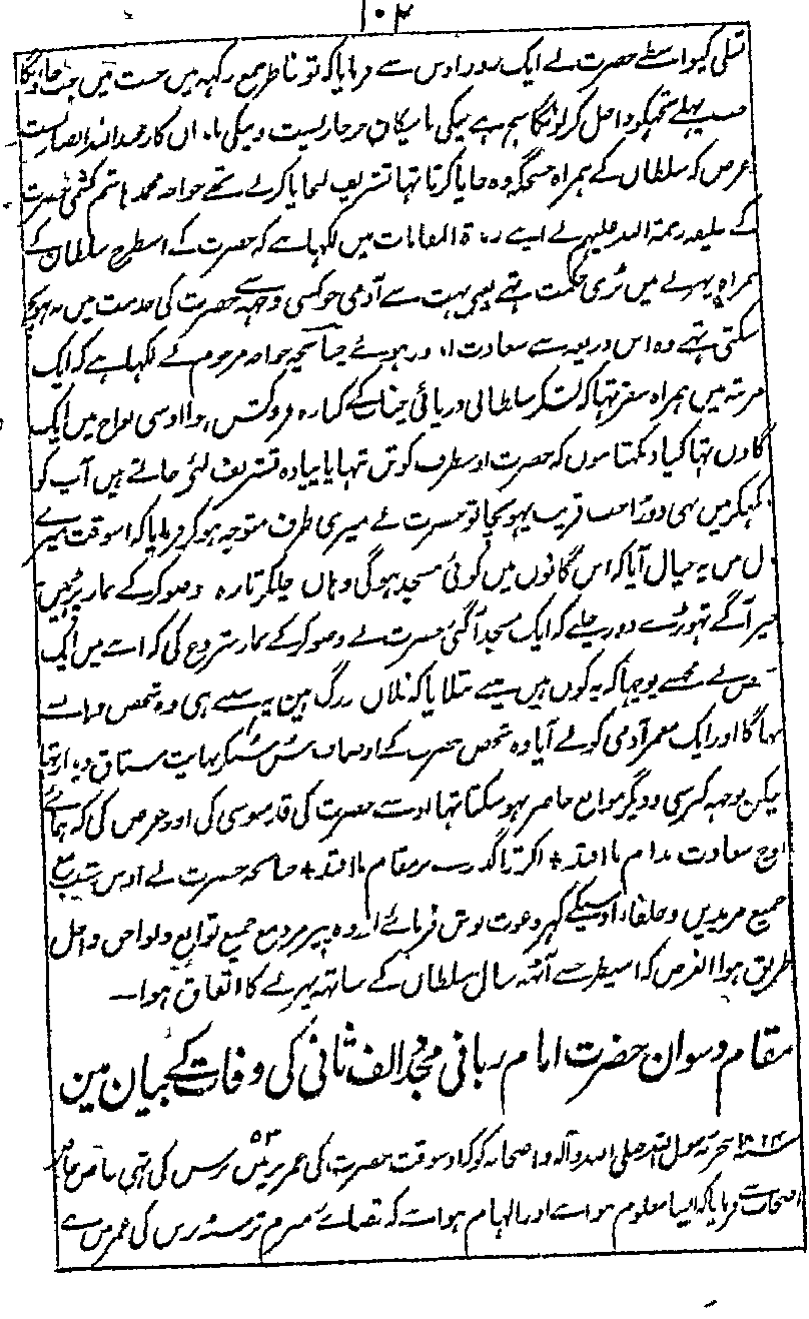 ۱۰۲
تسلی کیواسطے حضرت نے ایک روز اوس سے فرمایا کہ تو خاطر جمع رکہہ میں جنت میں جب جاؤنگا
پہلے تجہکو داخل کرلونگا سچ ہے نیکی با نیکان خرجاریست
غرض کہ سلطان کے ہمراہ جس جگہ وہ جایا کرتا تہا تشریف لیجایا کرتے تہے خواجہ محمد ہاشم کشمی حضرت
کے خلیفہ رحمۃ اللہ علیہم نے اپنے زبدۃ المقامات میں لکہا ہے کہ حضرت کے اسطرح سلطان کے
ہمراہ پہرنے میں بڑی حکمت تہی یعنی بہت سے آدمی جو کسی وجہہ سے حضرت کی خدمت میں نہ پہونچ
سکتی تہے وہ اس ذریعہ سے سعادت اندوز ہوئے چنانچہ خواجہ مرحوم نے لکہا ہے کہ ایک
مرتبہ میں ہمراہ سفر تہا کہ لشکر سلطانی دریائی چناب کے کنارہ فروکش ہوا اوسی نواح میں ایک
گاوں تہا کیا دیکہتا ہوں کہ حضرت اوسطرف کو تن تنہا پاپیادہ تشریف لئے جاتے ہیں آپ کو
دیکہکر میں بہی دوڑا جب قریب پہونچا تو حضرت نے میری طرف متوجہ ہوکر فرمایا کہ اسوقت میرے
دل میں یہ خیال آیا کہ اس گانوں میں کوئی مسجد ہوگی وہاں چلکر تازہ وضو کرکے نماز پڑہیں
خیر آگے تہوڑے دور چلے کہ ایک مسجد آگئی حضرت نے وضو کرکے نماز شروع کی کہ اتنے میں ایک
شخص نے مجہسے پوچہا کہ یہ کون ہیں مینے بتلایا کہ فلاں بزرگ ہین یہ سنتے ہی وہ شخص وہاں سے
بہاگا اور ایک معمر آدمی کو لے آیا وہ شخص حضرت کے اوصاف سن سنکر نہایت مشتاق دیدار تہا
لیکن بوجہہ کبرسنی و دیگر موانع حاضر نہو سکتا تہا اوسنے حضرت کی قدمبوسی کی اور عرض کی کہ ہمائے
اوج سعادت بدام ما افتد + اگر ترا گذرے بر مقام ما افتد + چنانچہ حضرت نے اوس شب مع
جمیع مریدیں و خلفاء اوسیکے گہر دعوت نوش فرمائے اور وہ پیر مرد مع جمیع توابع و لواحق داخل
طریق ہوا الغرض کہ اسیطرح سے آٹہہ سال سلطاں کے ساتہہ پہرنے کا اتفاق ہوا۔
مقام دسوان حضرت امام ربانی مجدد الف ثانی کی وفات کے بیان مین
رسول اللہ صلی اللہ و آلہ و اصحابہ کو کہ اوسوقت حضرت کی عمر ترپن ۵۳ برس کی تہی
اصحاب سے فرمایا کہ ایسا معلوم ہوا ہے اور الہام ہوا ہے کہ قضائے مبرم ترسٹہہ برس کی عمر میں ہے